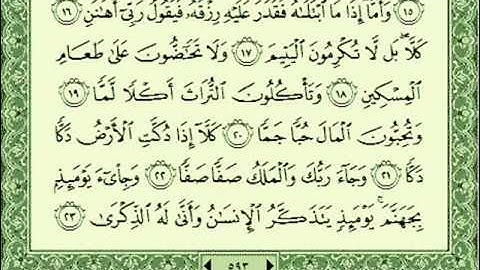 ﴿١٥﴾ وَأَمَّآ إِذَا مَا ٱبْتَلَىٰهُ فَقَدَرَ عَلَيْهِ رِزْقَهُۥ فَيَقُولُ رَبِّىٓ أَهَـٰنَنِ ﴿١٦﴾
كَلَّا ۖ بَل لَّا تُكْرِمُونَ ٱلْيَتِيمَ ﴿١٧﴾ وَلَا تَحَـٰٓضُّونَ عَلَىٰ طَعَامِ
ٱلْمِسْكِينِ ﴿١٨﴾ وَتَأْكُلُونَ ٱلتُّرَاثَ أَكْلًا لَّمًّا ﴿١٩﴾
وَتُحِبُّونَ ٱلْمَالَ حُبًّا جَمًّا ﴿٢٠﴾ كَلَّآ إِذَا دُكَّتِ ٱلْأَرْضُ دَكًّا
دَكًّا ﴿٢١﴾ وَجَآءَ رَبُّكَ وَٱلْمَلَكُ صَفًّا صَفًّا ﴿٢٢﴾ وَجِا۟ىٓءَ يَوْمَئِذٍۭ
بِجَهَنَّمَ ۚ يَوْمَئِذٍ يَتَذَكَّرُ ٱلْإِنسَـٰنُ وَأَنَّىٰ لَهُ ٱلذِّكْرَىٰ ﴿٢٣﴾
٥٩٣